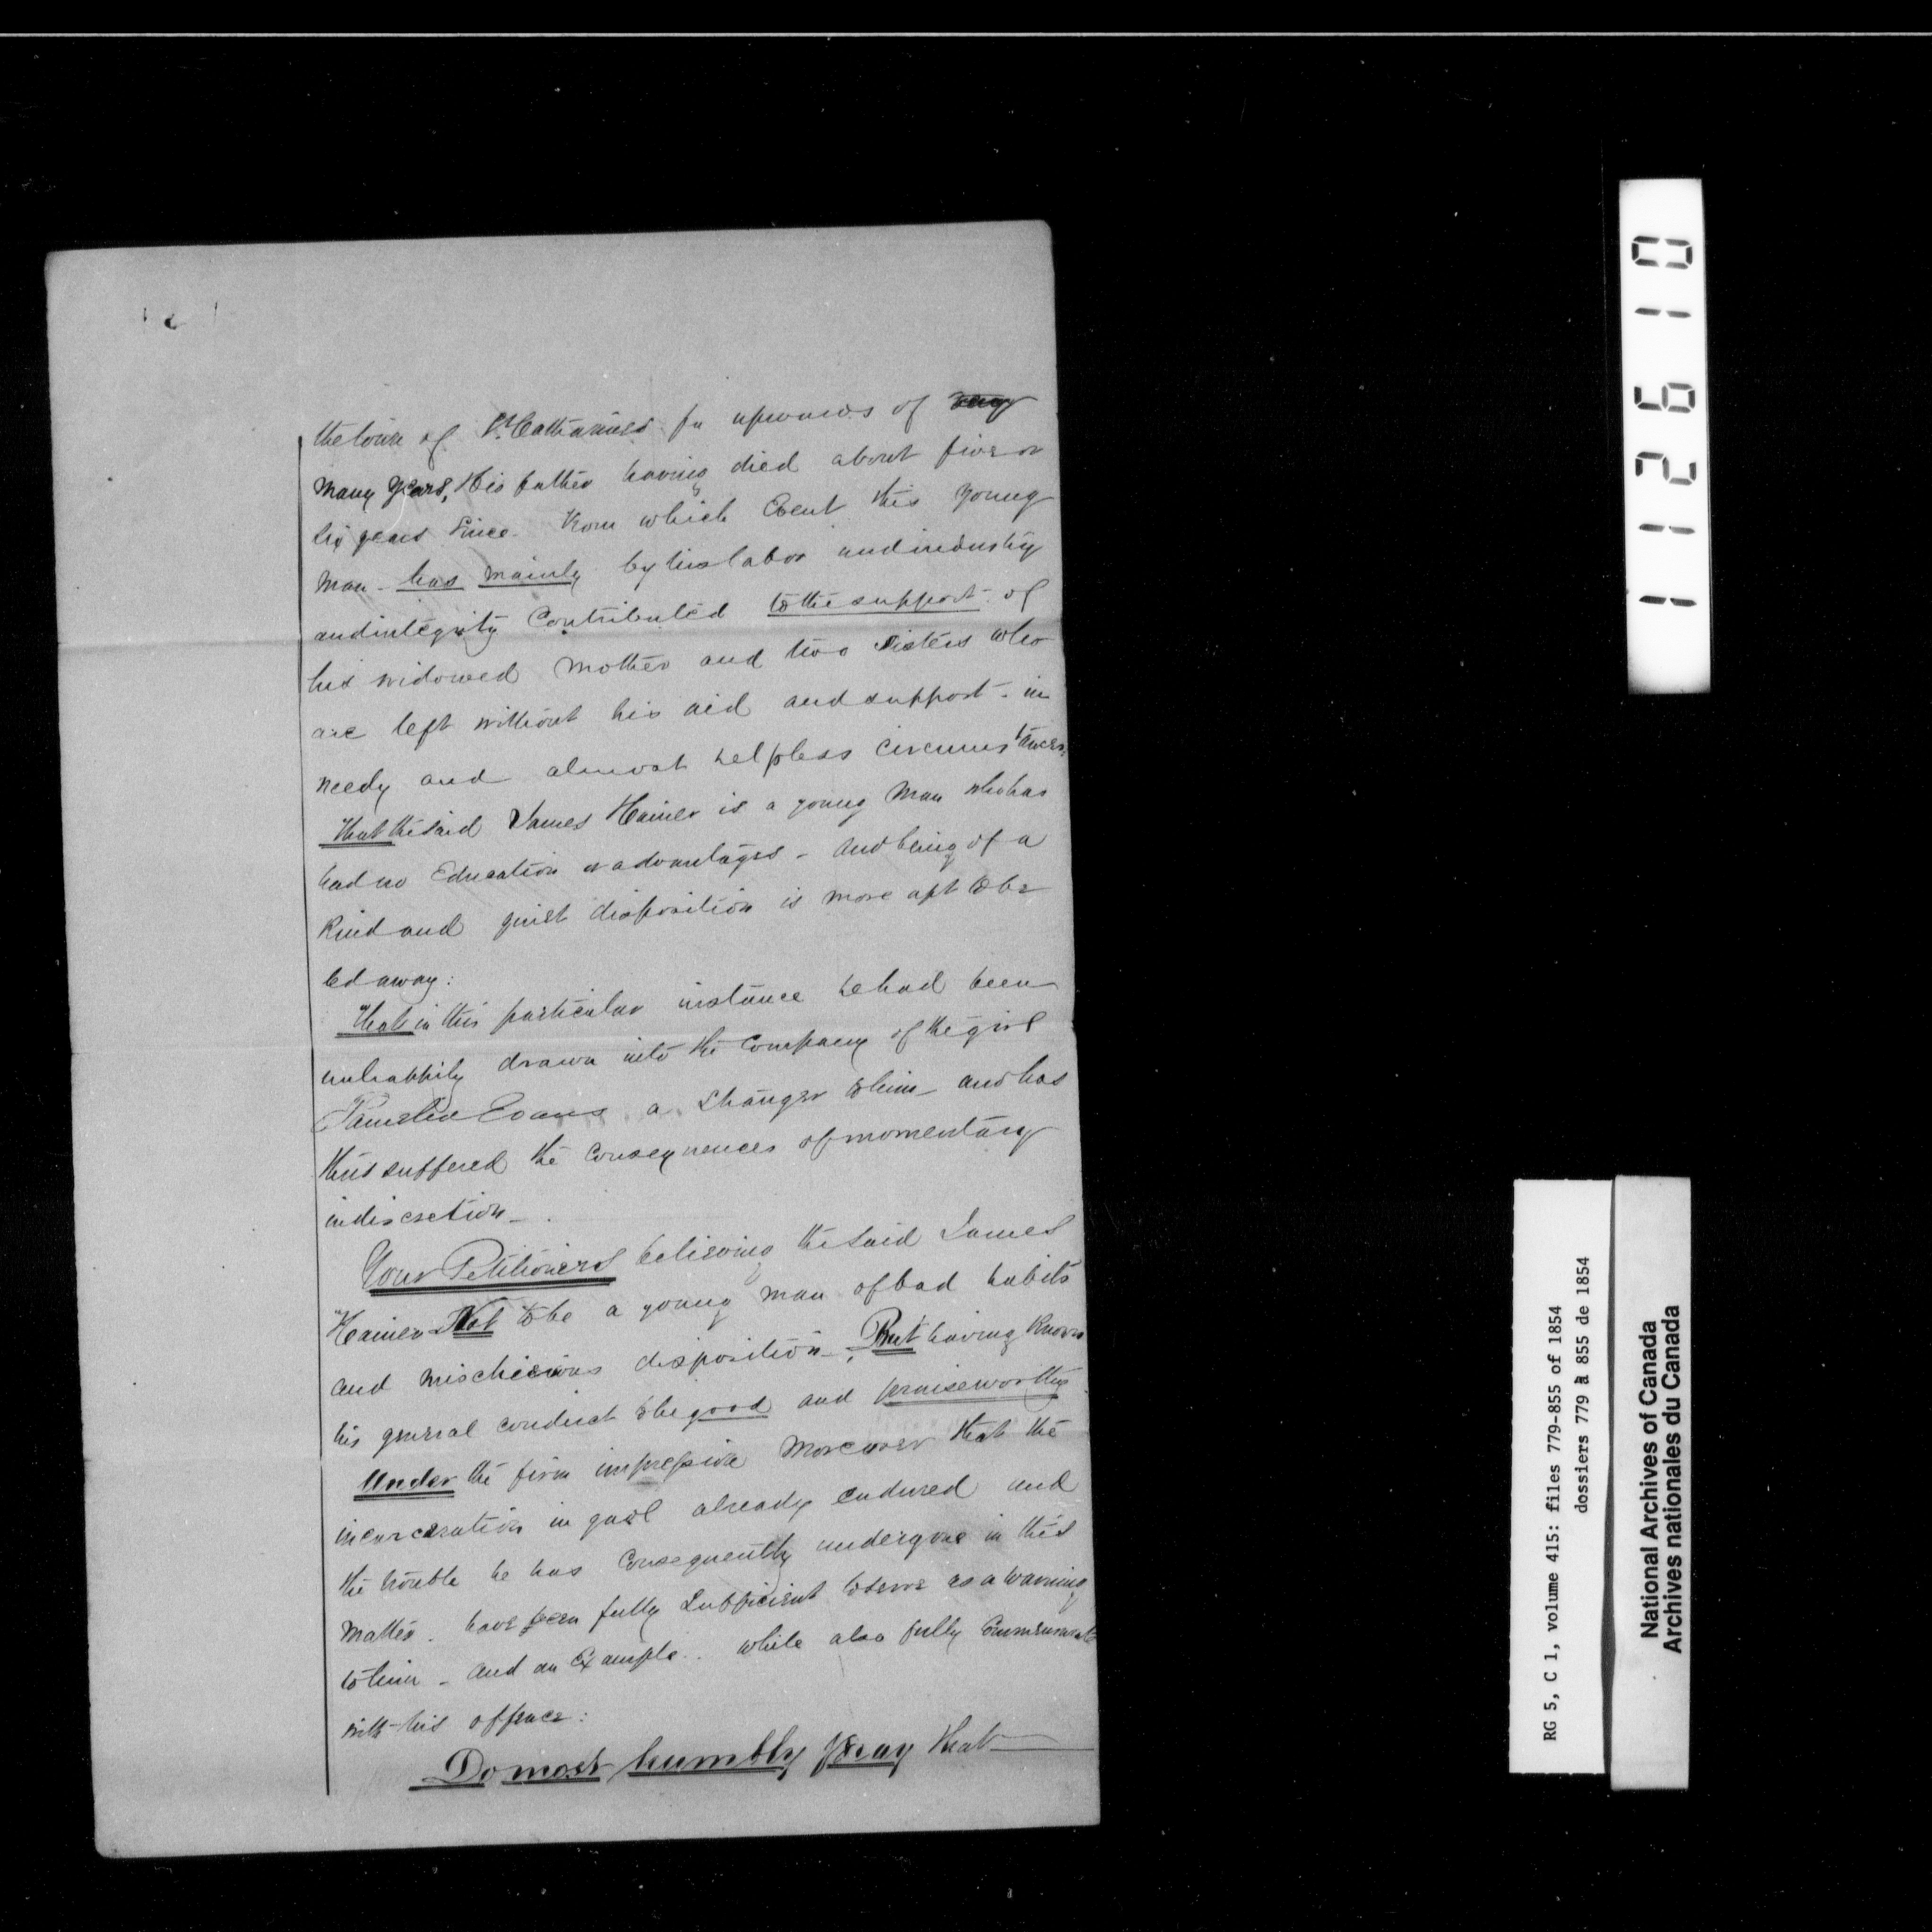 the town of St. Catharines for upwards of
many years, His father having died about five or
six years since. From which Event this young
man - has mainly by his labor and industry
and integrity Contributed to the support - of
his widowed Mother and two sisters who
are left without his aid and support - in
needy and almost helpless circumstances.
That the said James Hainer is a young Man who has
had no Education or advantages - and being of a
Kind and quiet disposition is more apt to be
led away:
That in this particular instance he had been
unhappily drawn into the Company of the girl
Pamelia Evans a stranger to him - and has
thus suffered the Consequences of momentary
indiscretion -
Your Petitioners believing the said James
Hainer Not to be a young man of bad habits
and mischievous disposition - But having Known
his general conduct to be good and praiseworthy
Under the firm impression Moreover that the
incarceration in gaol already endured and
the trouble he has Consequently undergone in this
Matter. have been fully Sufficient to serve as a warning
to him - and an Example. while also fully Commensurate
with his offence:
Do most humbly pray that
112610
RG 5, C 1, volume 415: files 779-855 of 1854
dossiers 779 à 855 de 1854
National Archives of Canada
Archives nationales du Canada